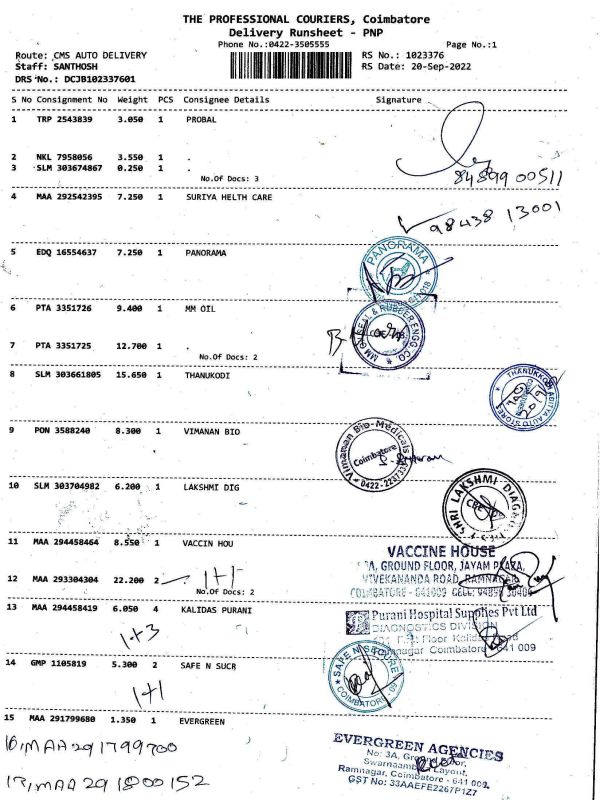 THE PROFESSIONAL COURIERS, Coimbatore
Delivery Runsheet - PNP
Phone No.:0422-3505555 Page No.:1
Route: CMS AUTO DELIVERY RS No.: 1023376
Staff: SANTHOSH RS Date: 20-Sep-2022
DRS No.: DCJB102337601
S No Consignment No Weight PCS Consignee Details Signature
1 TRP 2543839 3.050 1 PROBAL
2 NKL 7958056 3.550 1 .
3 SLM 303674867 0.250 1 .
No.Of Docs: 3
84899 00511
4 MAA 292542395 7.250 1 SURIYA HELTH CARE
98438 13001
5 EDQ 16554637 7.250 1 PANORAMA
PANORAMA
6 PTA 3351726 9.400 1 MM OIL
MM OIL SEAL & RUBBER ENGG. CO.
7 PTA 3351725 12.700 1 .
No.Of Docs: 2
8 SLM 303661805 15.650 1 THANUKODI
AUTO STORES
9 PON 3588240 8.300 1 VIMANAN BIO
Vimanan Bio-Medicals
Coimbatore
10 SLM 303704982 6.200 1 LAKSHMI DIG
SHRI LAKSHMI
11 MAA 294458464 8.550 1 VACCIN HOU
VACCINE HOUSE
GROUND FLOOR, JAYAM PLAZA,
VIVEKANANDA ROAD, RAMNAGAR
COIMBATORE - 641009 CELL:
12 MAA 293304304 22.200 2 . 1+1
No.Of Docs: 2
13 MAA 294458419 6.050 4 KALIDAS PURANI
1+3
Purani Hospital Supplies Pvt Ltd
DIAGNOSTICS DIVISION
Floor Kalidas Road
Ramnagar Coimbatore - 641 009
14 GMP 1105819 5.300 2 SAFE N SUCR
1+1
SAFE N SECURE
COIMBATORE-09
15 MAA 291799680 1.350 1 EVERGREEN
16, MAA 291799700
17, MAA 291800152
EVERGREEN AGENCIES
No: 3A, Ground Floor,
Swarnaambika Layout,
Ramnagar, Coimbatore - 641 009.
GST No: 33AAEFE2267P1Z7